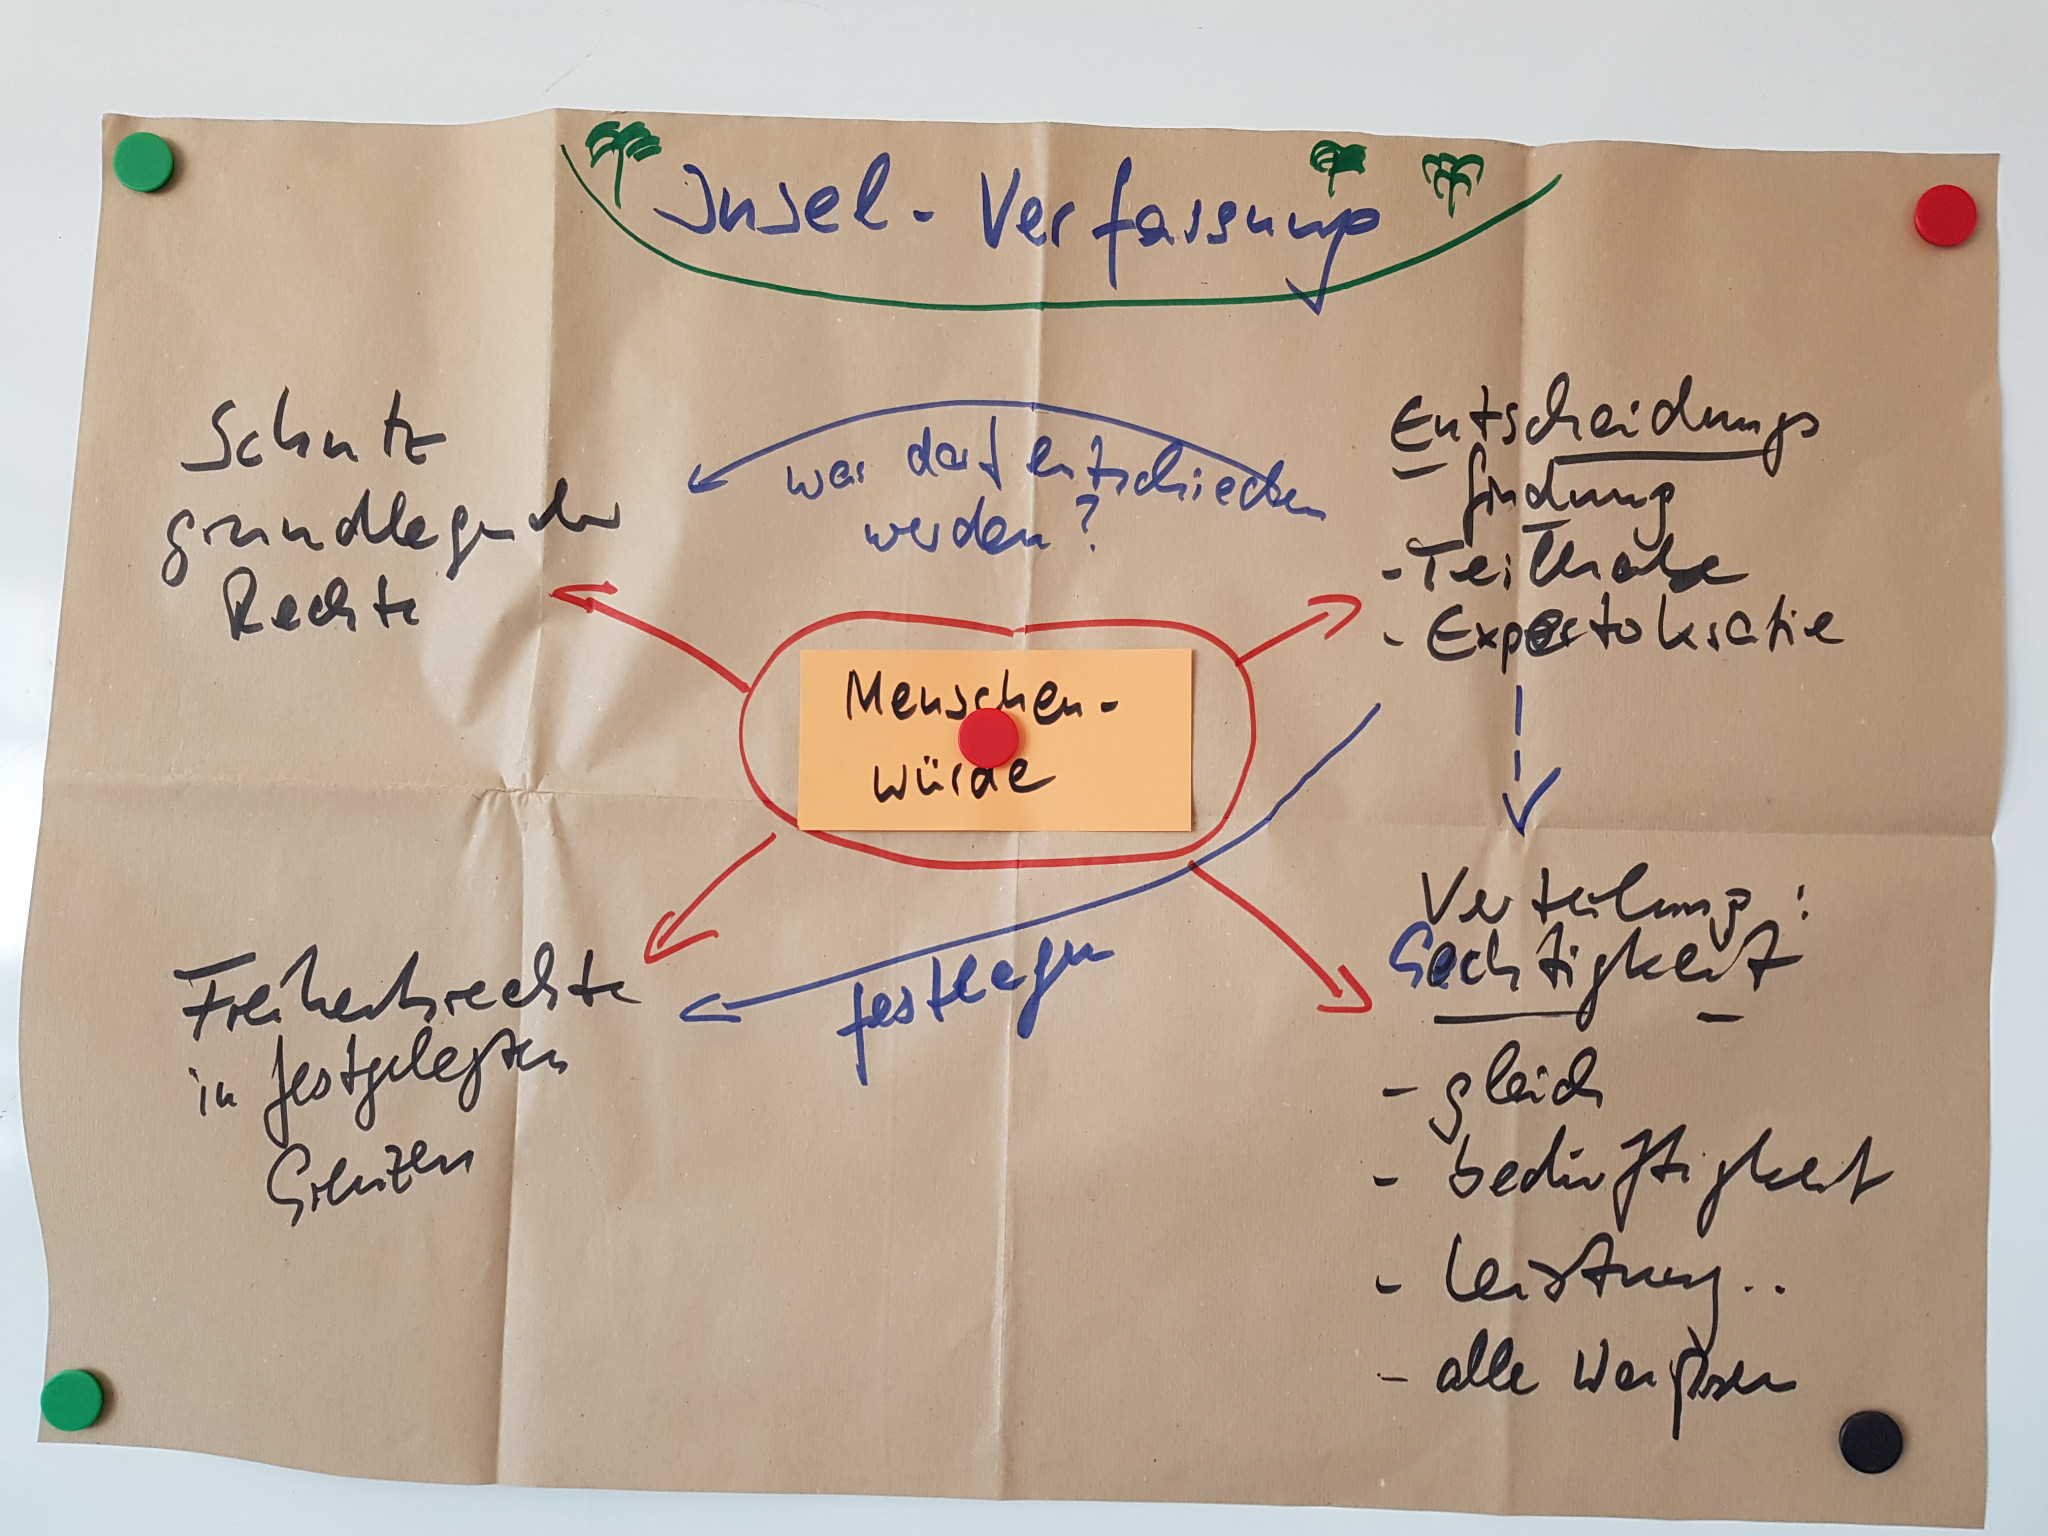 Insel-Verfassung
Schutz
grundlegender
Rechte
was darf entschieden
werden?
Entscheidungs
findung
- Teilhabe
- Expertokratie
Menschen-
würde
Freiheitsrechte
in festgelegten
Grenzen
festlegen
Verteilung:
Gechtigkeit
- gleich
- bedürftigkeit
- Leistung..
- alle